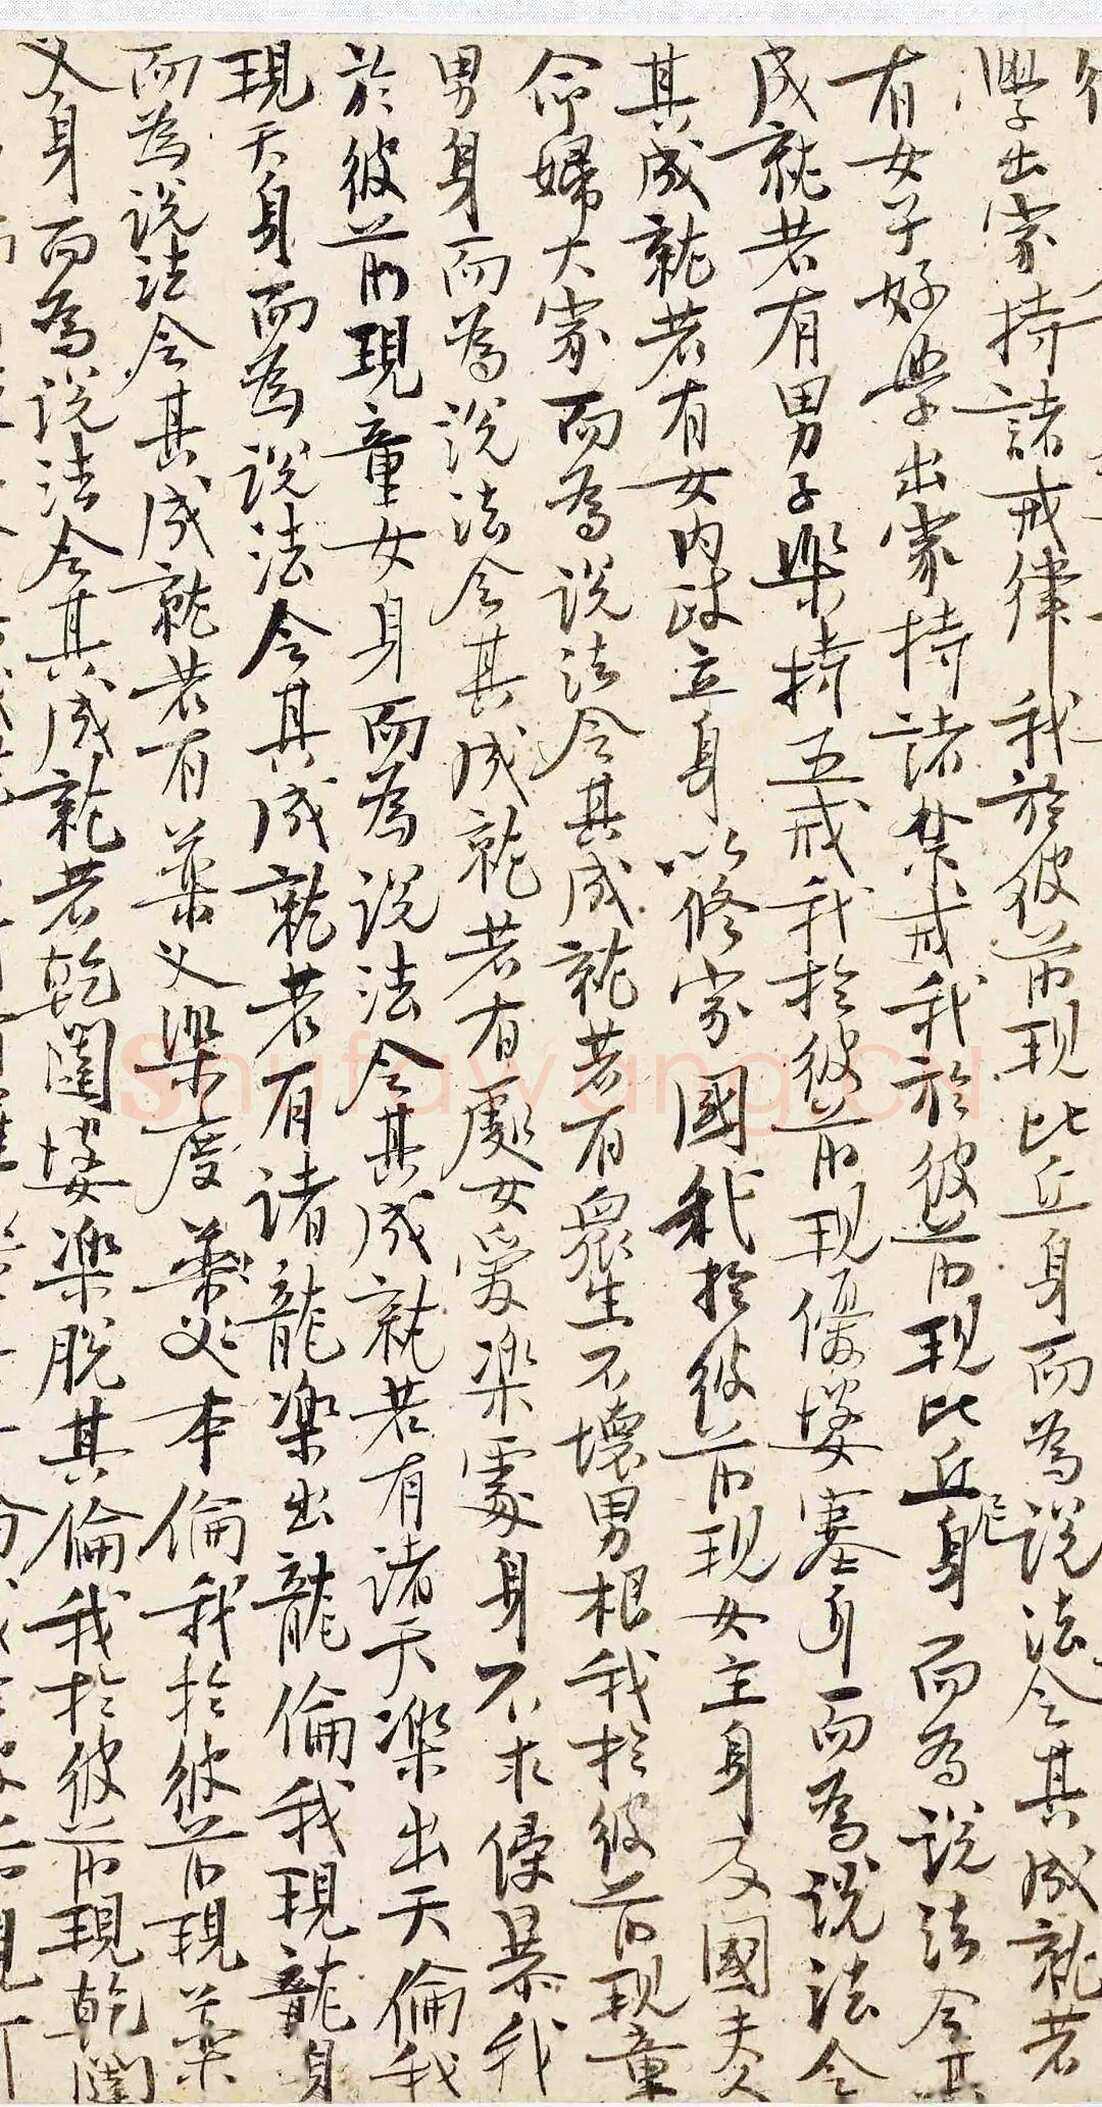 學出家持諸戒律我於彼前現比丘身而為說法令其成就若
有女子好學出家持諸禁戒我於彼前現比丘尼身而為說法令其
成就若有男子樂持五戒我於彼前現優婆塞身而為說法令
其成就若有女內政立身以修家國我於彼前現女主身及國夫人
命婦大家而為說法令其成就若有眾生不壞男根我於彼前現童
男身而為說法令其成就若有處女愛樂處身不求侵暴我
於彼前現童女身而為說法令其成就若有諸天樂出天倫我
現天身而為說法令其成就若有諸龍樂出龍倫我現龍身
而為說法令其成就若有藥叉樂度藥叉本倫我於彼前現藥
叉身而為說法令其成就若乾闥婆樂脫其倫我於彼前現乾闥
shufawang.cn